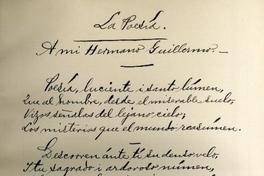 La Poesía.
A mi Hermano Guillermo.—
Poesía, luciente i santo lúmen,
Que al hombre, desde el miserable suelo,
señalas del lejano cielo,
Los misterios que el mundo resúmen.
Descorren ánte tí su denso velo,
I tu sagrado i ardoroso númen,